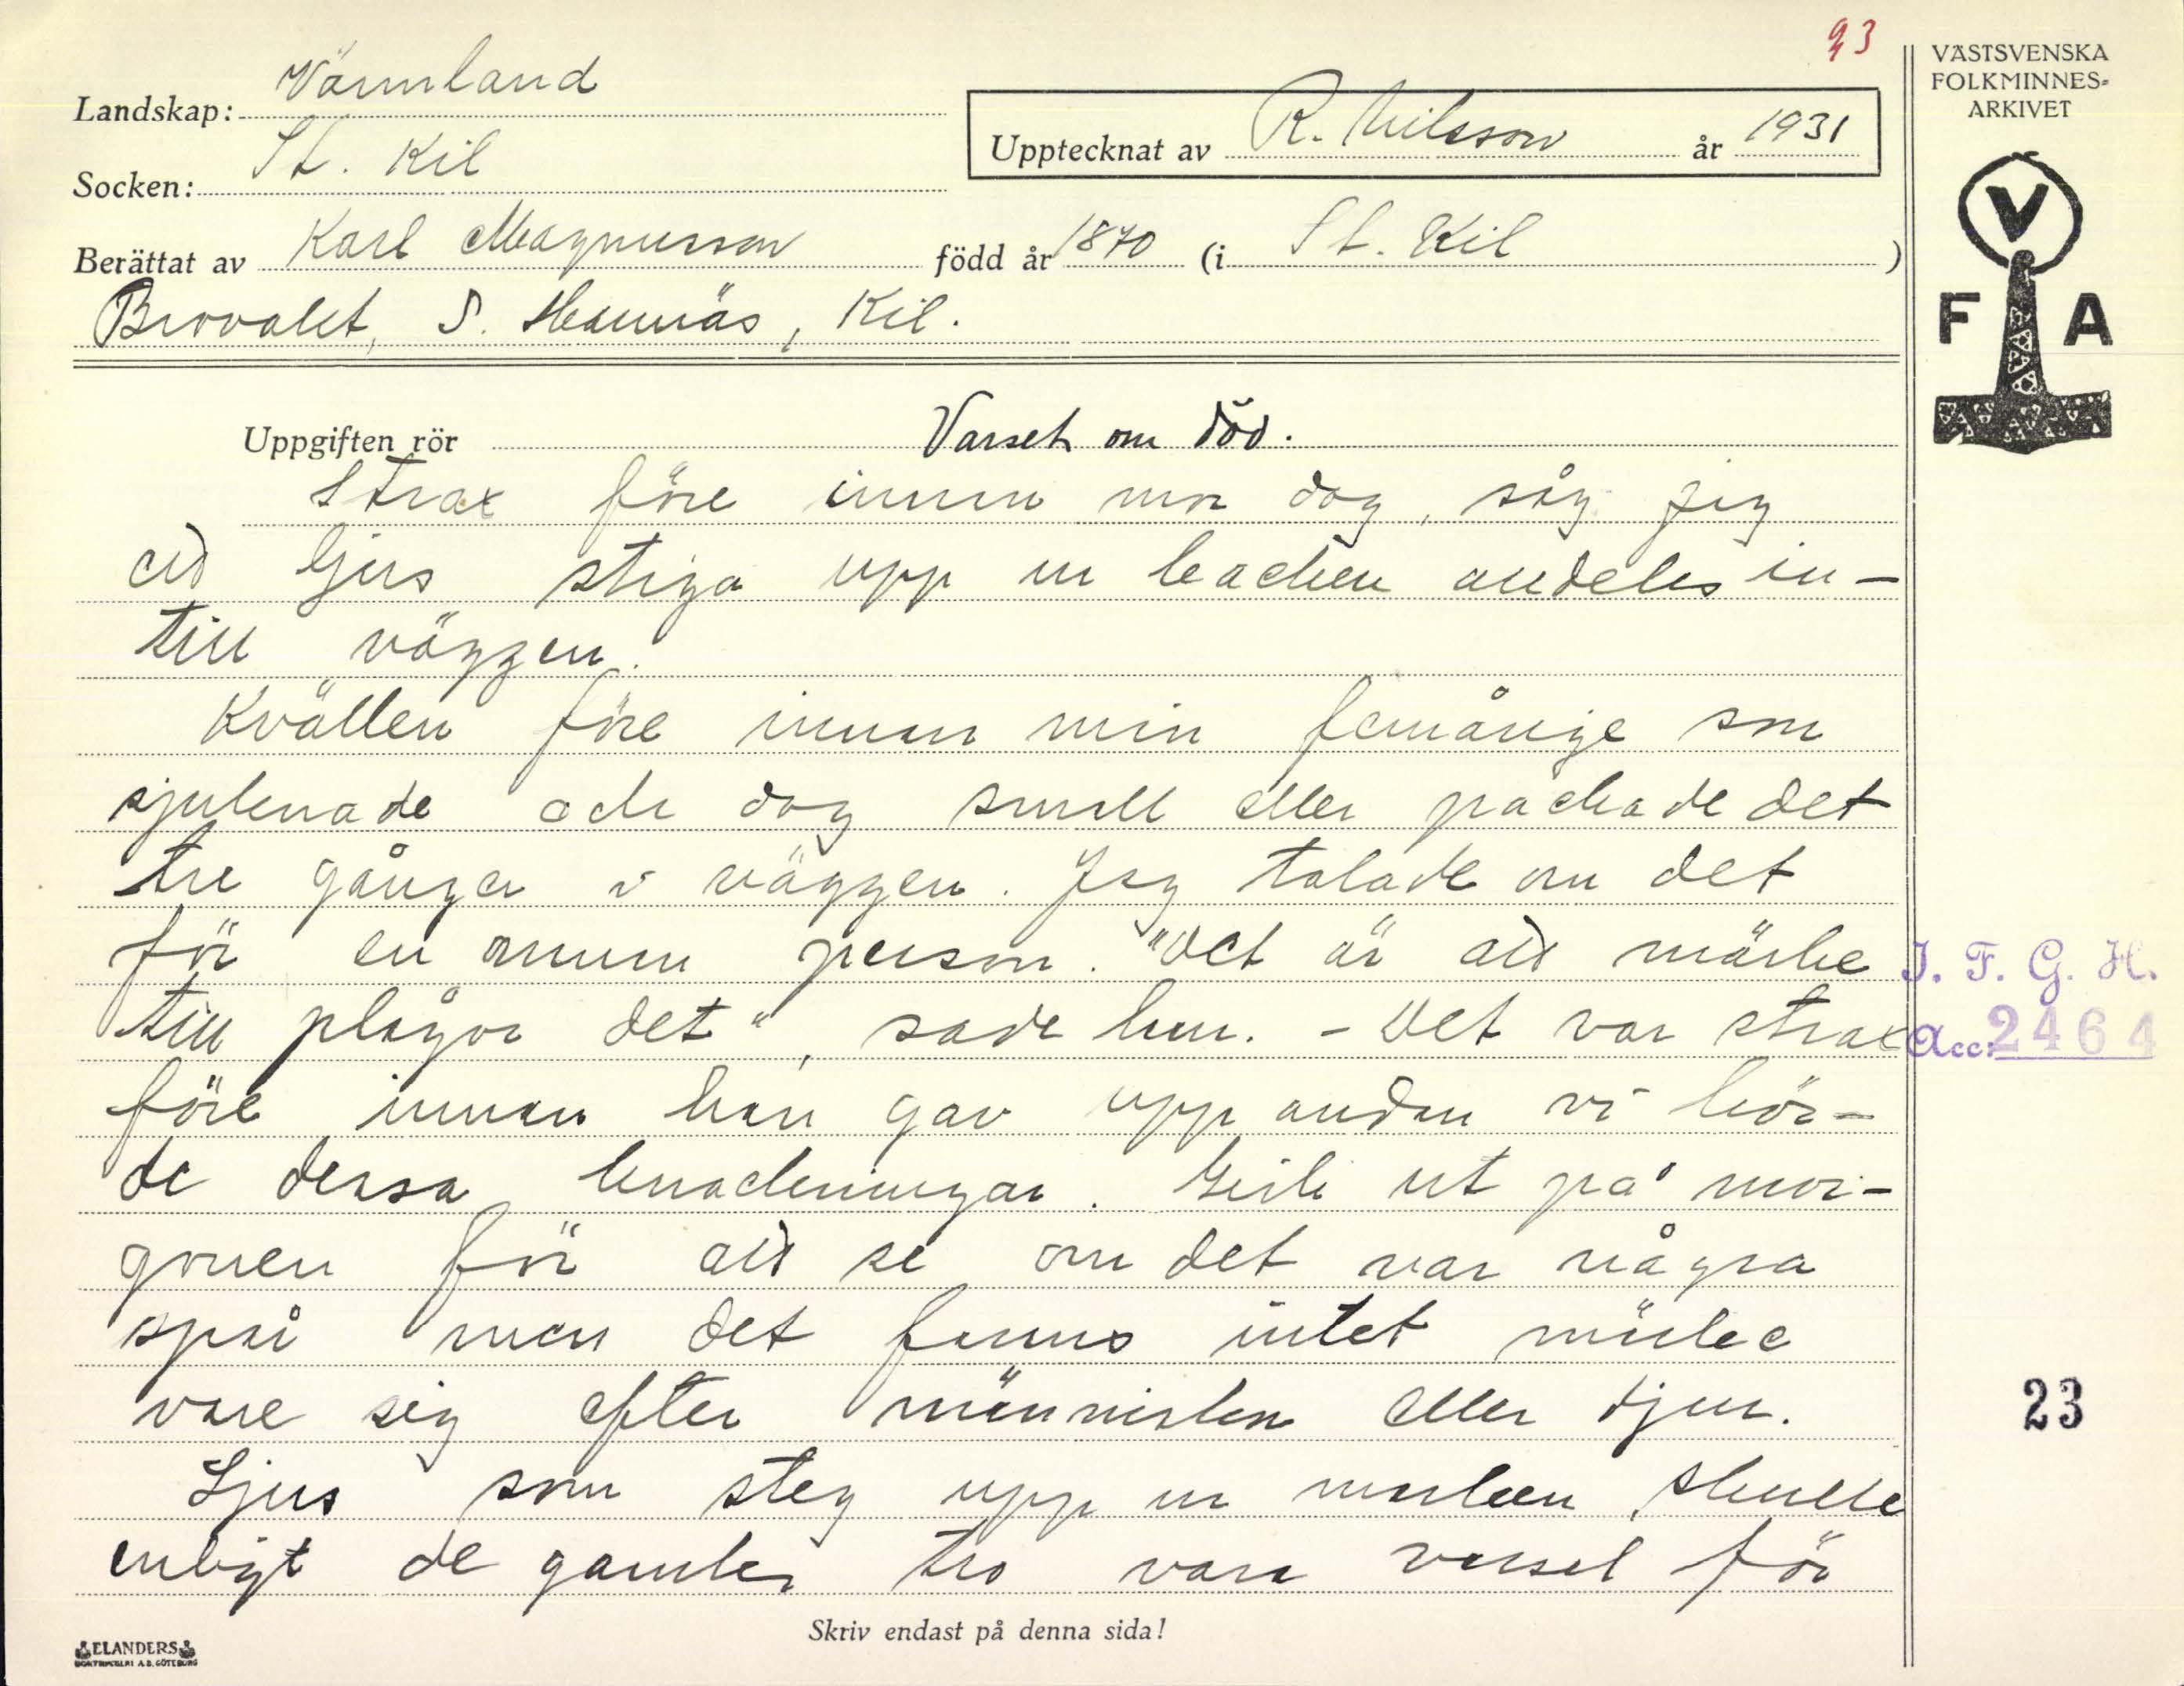 93
VÄSTSVENSKA
FOLKMINNES-
ARKIVET
Landskap: Värmland
Upptecknat av R. Nilsson år 1931
Socken: St. Kil
Berättat av Karl Magnusson född år 1870 (i St. Kil )
S. Hannäs, Kil.
V
F A
Uppgiften rör Varsel om död.
Strax före innan mor dog, såg jag
ett ljus stiga upp ur backen alldeles in-
till väggen.
Kvällen före innan min femårige son
sjuknade och dog small eller påckade det
tre gånger i väggen. Jag talade om det
för en annan person. "Det är ett märke
till plågor det", sade hon. - Det var strax
före innan han gav upp andan vi hör-
de dessa knackningar. Gick ut på mor-
gonen för att se om det var några
spår men det fanns intet märke
vare sig efter människa eller djur.
Ljus som steg upp ur marken, skulle
enligt de gamles tro vara varsel för
I. F. G. H.
Acc: 2464
23
Skriv endast på denna sida!
ELANDERS
BOKTRYCKERI A.B. GÖTEBORG